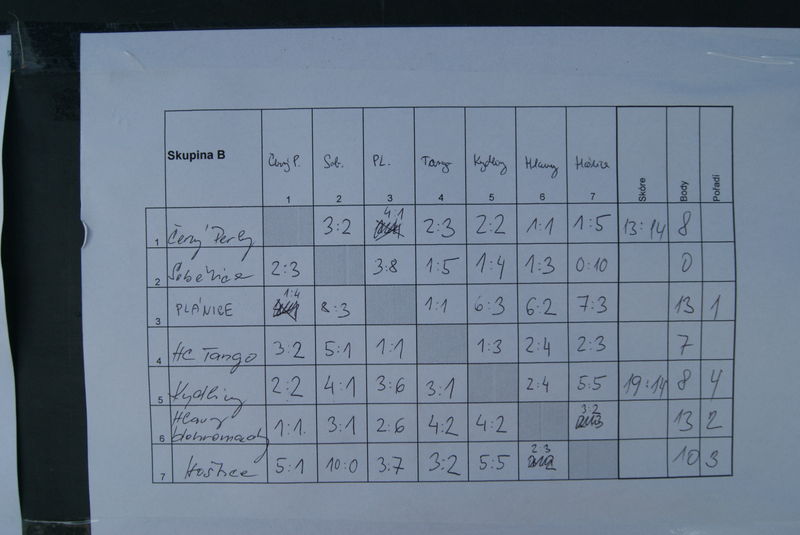 Skupina B Černý P. Sob. PL. Tango Kydliny Hlavy Hoštice Skóre Body Pořadí
1 2 3 4 5 6 7
1 Černý Perly 3:2 4:1 2:3 2:2 1:1 1:5 13:14 8
2 Soběšice 2:3 3:8 1:5 1:4 1:3 0:10 0
3 PLÁNICE 1:4 8:3 1:1 6:3 6:2 7:3 13 1
4 HC Tango 3:2 5:1 1:1 1:3 2:4 2:3 7
5 Kydliny 2:2 4:1 3:6 3:1 2:4 5:5 19:14 8 4
6 Hlavy dohromady 1:1 3:1 2:6 4:2 4:2 3:2 13 2
7 Hoštice 5:1 10:0 3:7 3:2 5:5 2:3 10 3